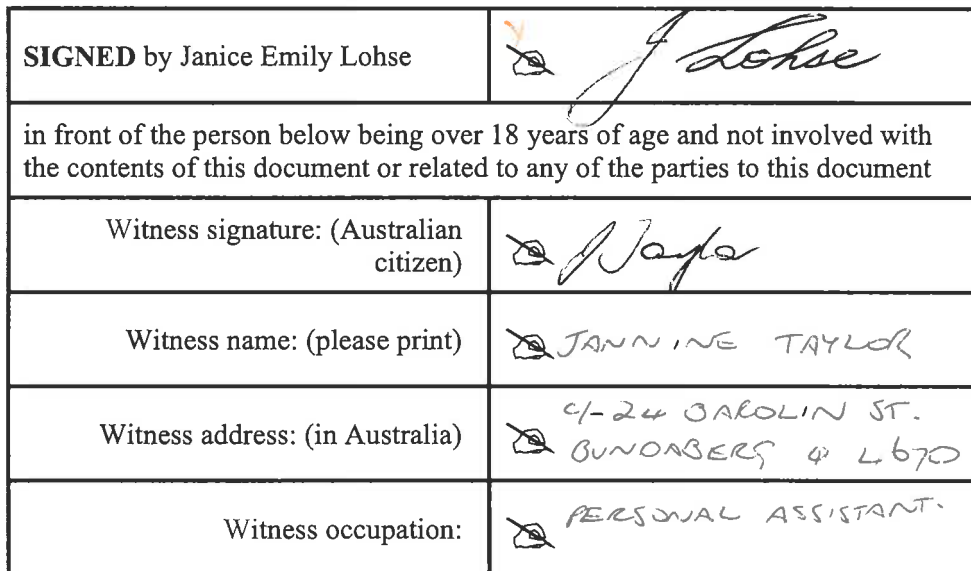 SIGNED by Janice Emily Lohse
J Lohse
in front of the person below being over 18 years of age and not involved with
the contents of this document or related to any of the parties to this document
Witness signature: (Australian
citizen)
Witness name: (please print)
JANNINE TAYLOR
Witness address: (in Australia)
C/- 24 BAROLIN ST.
BUNDABERG Q 4670
Witness occupation:
PERSONAL ASSISTANT.